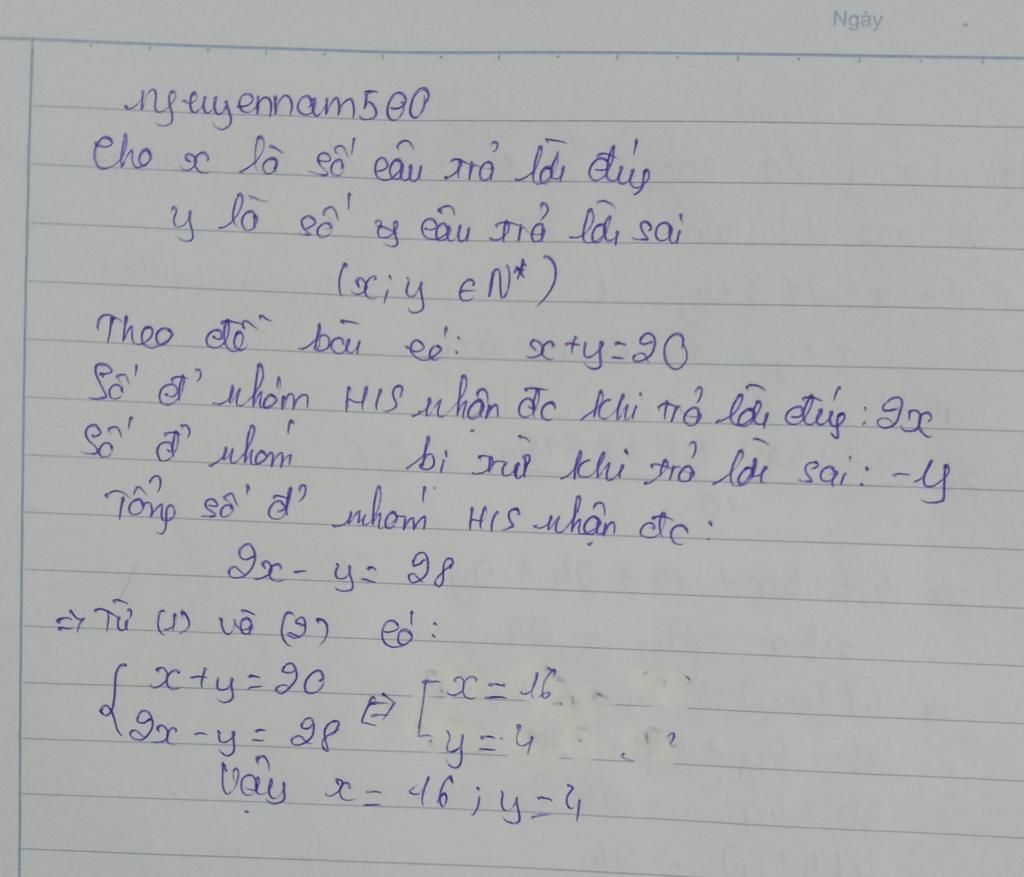 Ngày
nguyennam500
Cho x là số câu trả lời đúg
y là số y câu trả lời sai
(x; y ∈ N*)
Theo đề bài có: x+y=20
Số đ' nhóm HIS nhận đc khi trả lời đúg: 2x
Số đ' nhóm bị trừ khi trả lời sai: -y
Tổng số đ' nhóm HIS nhận đc:
2x - y = 28
=> Từ (1) và (2) có:
{ x+y=20 <=> [ x=16
2x-y=28 y=4
Vậy x=16; y=4